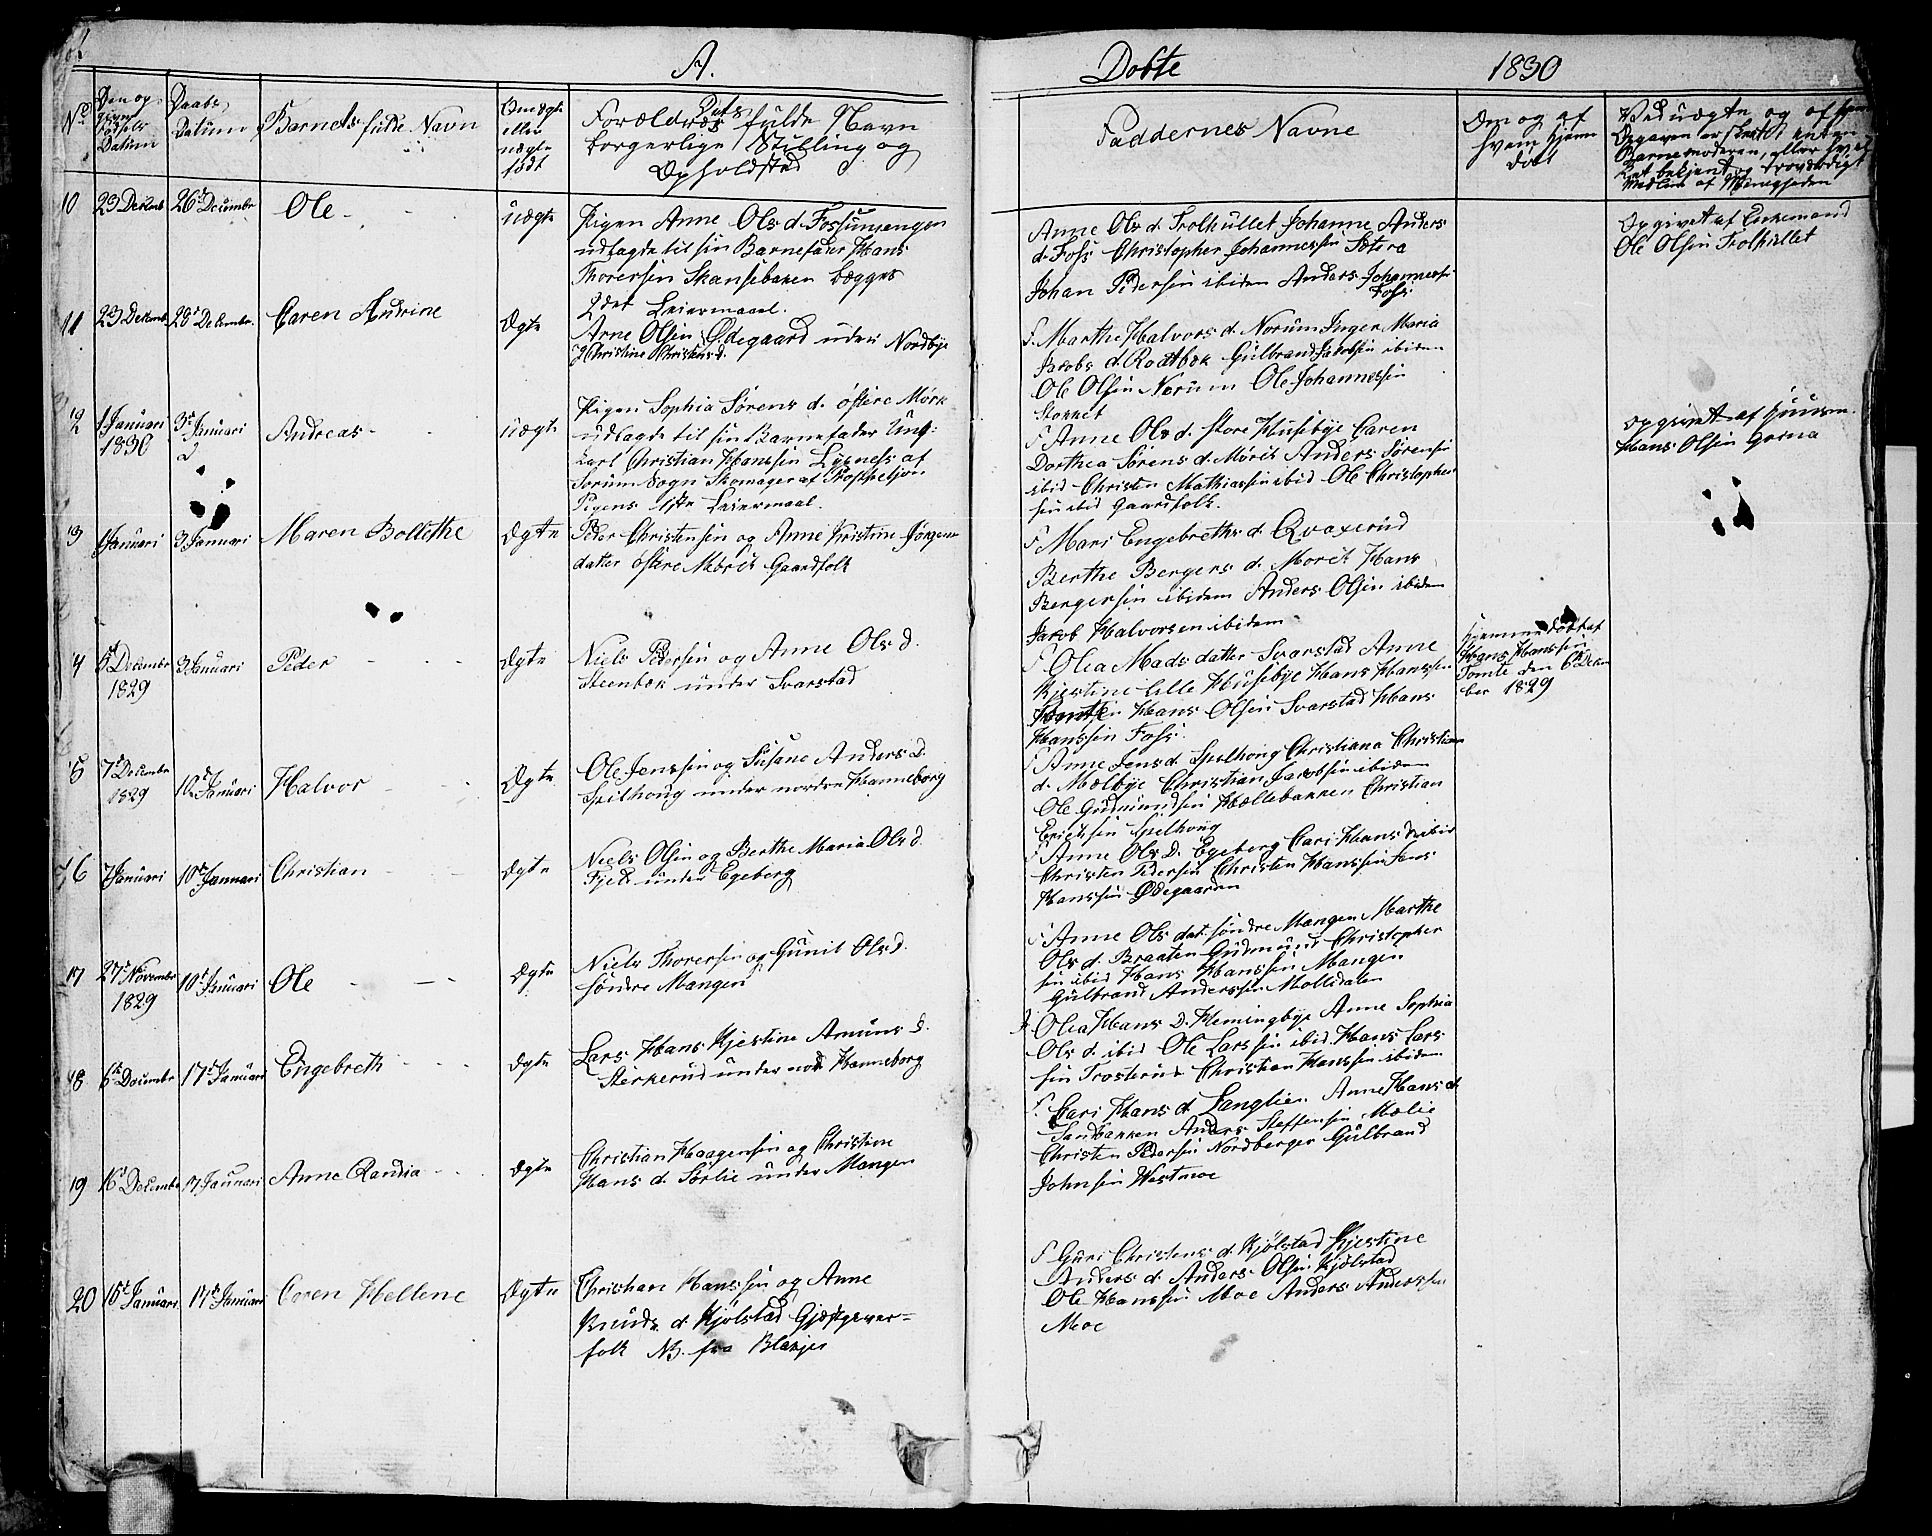 A. Døbte 1830
No
Den op-
given
Fødsels
Datum
Daabs
Datum
Barnets fulde Navn
Om ægte
eller
uægte
født
Forældrenes fulde Navn
borgerlige Stilling og
Opholdsted
Faddernes Navne
Om og af
hvem hjemme
døbt
Ved uægte og af hvem
Opgaven er skeet, enten
Barnemoderen, eller hvil
ket bekjent og troværdigt
Medlem af Menigheden
10 23 Decemb 26 Decembr Ole uægte
Pigen Anne Ols d. Fossumengen
udlagde til sin Barnefader Hans
Thorersen Skansebaken begges
2det Leiermaal.
Anne Ols d. Trolhullet Johanne Anders
d. Foss Christopher Johannessen Sotera
Johan Pedersen ibidem Anders Johannessen
Foss
Opgivet af Enkemand
Ole Olsen Trolhullet
11 23 Decemb 28 Decembr. Caren Andrine Ægte
Arne Olsen Ødegaard under Nordbye
og Christine Christens d.
F. Marthe Halvors d. Norum Inger Maria
Jacobs d. Rodbek Gulbrand Jacobsen ibidem
Ole Olsen Norum Ole Johannessen
Stokket
12 1 Januari
1830
3 Januari Andreas uægte
Pigen Sophia Sørens d. østre Mørk
udlagde til sin Barnefader Ung:
karl Christian Hanssen Lysness af
Sørum Sogn Skomager af Profhesjon
Pigens 1ste Leiermaal.
F Anne Ols d. store Husebye Caren
Dorthea Sørens d. Mörit Anders Sørensen
ibid Christen Mathiassen ibid Ole Christopher
sen ibid Gaardfolk.
Opgivet af Huusm.
Hans Olsen Gorna
13 1 Januari 3 Januari Maren Bollethe Ægte
Peder Christensen og Anne Kristine Jørgens
datter østre Mörit Gaardfolk
F Mari Engebreths d. Qvaxerud
Berthe Bergers d. Morit Hans
Bergersen ibidem Anders Olsen ibidem
Jacob Halvorsen ibidem
14 5 Decembr
1829
3 Januari Peder Ægte
Niels Pedersen og Anne Ols d.
Steenbek under Svarstad
F Olea Mads datter Svarstad Anne
Kjestine lille Husebye Hans Hanssen
Tomte Hans Olsen Svarstad Hans
Hanssen Foss.
Hjemmedøbt af
Hans Hanssen
Tomte den 6 Decem
ber 1829
15 7 Decembr
1829
10 Januari Halvor Ægte
Ole Jenssen og Susane Anders D.
Spilhoug under nordre Hanneborg
F Anne Jens d. Spelhoug Christiana Christian
d. Mælbye Christian Jacobsen ibidem
Ole Gudmundsen Hællebakken Christian
Ericksen Spelhoug
16 7 Januari 10 Januari Christian Ægte
Niels Olsen og Berthe Maria Ols d.
Fjeld under Egeberg
F Anne Ols D. Egeberg Cari Hans D ibid
Christen Pedersen Christen Hanssen Jens
Hanssen Ødegaarden
17 27 Novembr
1829
10 Januari Ole Ægte
Niels Thorersen og Gunil Ols d.
søndre Mangen
F Anne Ols dat. søndre Mangen Marthe
Ols d. Braaten Gudmund Christopher
sen ibid Hans Hanssen Mangen
Gulbrand Anderssen Mollsdalen
18 6 Decembr 17 Januari Engebreth Ægte
Lars Hans Kjestine Amuns d.
Sterkerud under nord Hanneborg
F. Olea Hans D. Flemingbye Anne Sophia
Ols d. ibid Ole Larssen ibid Hans Lars
sen Trosterud Christian Hanssen ibidem
19 16 Decembr 17 Januari Anne Randia Ægte
Christian Haagensen og Christine
Hans d. Sørlie under Mangen
F. Cari Hans d Langlien Anne Hans d.
Sandbakken Anders Steffensen Mælie
Christen Pedersen Nordberger Gulbrand
Johnsen Westmoe
20 15 Januari 17 Januari Caren Hellene Ægte
Christian Hanssen og Anne
Knuds d. Kjølstad Gjæstgever=
folk NB. fra Blakjer
F Guri Christens d. Kjølstad Kjestine
Anders d. Anders Olsen Kjølstad
Ole Hanssen Moe Anders Anderssen
Moe